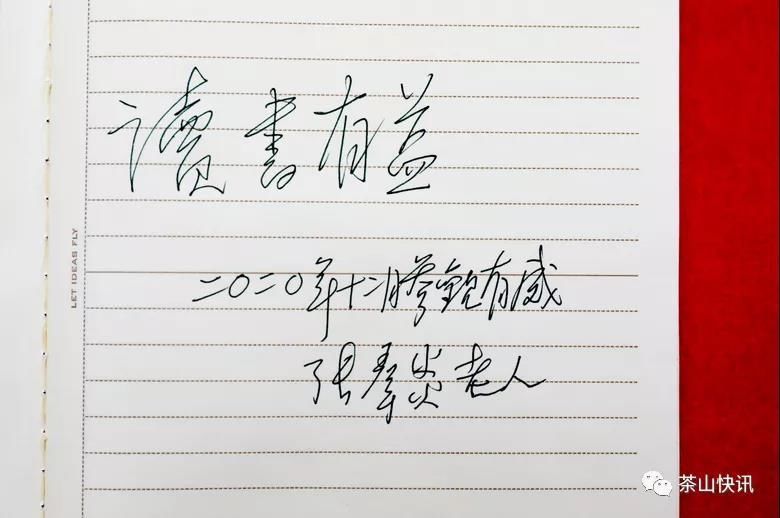 讀書有益
二〇二〇年十二月參觀有感
张羣炎老人
LET IDEAS FLY
茶山快讯